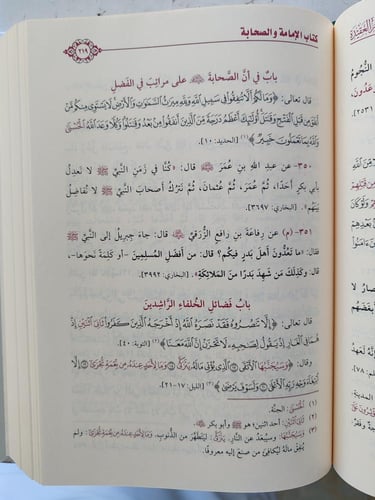 كتاب الإمامة والصحابة
٢١٩
بابٌ في أنَّ الصَّحابةَ ﷺ على مراتبَ في الفَضلِ
قال تعالى: ﴿وَمَا لَكُمْ أَلَّا تُنفِقُوا۟ فِى سَبِيلِ ٱللَّهِ وَلِلَّهِ مِيرَٰثُ ٱلسَّمَـٰوَٰتِ وَٱلْأَرْضِ لَا يَسْتَوِى مِنكُم مَّنْ
أَنفَقَ مِن قَبْلِ ٱلْفَتْحِ وَقَـٰتَلَ أُو۟لَـٰٓئِكَ أَعْظَمُ دَرَجَةً مِّنَ ٱلَّذِينَ أَنفَقُوا۟ مِنۢ بَعْدُ وَقَـٰتَلُوا۟ وَكُلًّا وَعَدَ ٱللَّهُ ٱلْحُسْنَىٰ
وَٱللَّهُ بِمَا تَعْمَلُونَ خَبِيرٌ﴾(١) [الحديد: ١٠].
٣٥٠- عن عبدِ اللهِ بنِ عُمَرَ قال: «كُنَّا في زَمَنِ النَّبيِّ ﷺ لا نَعدِلُ
بأبي بكرٍ أحَدًا، ثُمَّ عُمَرَ، ثُمَّ عُثمانَ، ثُمَّ نَترُكُ أصحابَ النَّبيِّ ﷺ لا نُفاضِلُ
بَينَهُم». [البخاري: ٣٦٩٧].
٣٥١- (م) عن رِفاعةَ بنِ رافعٍ الزُّرَقيِّ قال: جاءَ جِبريلُ إلى النَّبيِّ ﷺ
فقال: «ما تَعُدُّونَ أهلَ بَدرٍ فيكُم؟ قال: من أفضَلِ المُسلِمينَ -أو كَلِمةً نَحوَها-،
قال: وكَذلِكَ مَن شَهِدَ بَدرًا مِنَ المَلائِكةِ». [البخاري: ٣٩٩٢].
بابُ فَضائلِ الخُلفاءِ الرَّاشِدينَ
قال تعالى: ﴿إِلَّا تَنصُرُوهُ فَقَدْ نَصَرَهُ ٱللَّهُ إِذْ أَخْرَجَهُ ٱلَّذِينَ كَفَرُوا۟ ثَانِىَ ٱثْنَيْنِ إِذْ
هُمَا فِى ٱلْغَارِ إِذْ يَقُولُ لِصَـٰحِبِهِۦ لَا تَحْزَنْ إِنَّ ٱللَّهَ مَعَنَا﴾(٢) [التوبة: ٤٠].
وقال: ﴿وَسَيُجَنَّبُهَا ٱلْأَتْقَى ۝ ٱلَّذِى يُؤْتِى مَالَهُۥ يَتَزَكَّىٰ ۝ وَمَا لِأَحَدٍ عِندَهُۥ مِن نِّعْمَةٍ تُجْزَىٰٓ ۝ إِلَّا
ٱبْتِغَآءَ وَجْهِ رَبِّهِ ٱلْأَعْلَىٰ ۝ وَلَسَوْفَ يَرْضَىٰ﴾(٣) [الليل: ١٧-٢١].
(١) ٱلْحُسْنَىٰ: الجنة.
(٢) ثَانِىَ ٱثْنَيْنِ: أحد اثنين؛ هو ﷺ وأبو بكر
(٣) وَسَيُجَنَّبُهَا: وسيُبعد عن النَّار. يَتَزَكَّىٰ: ليتطهر من الذُّنوب. وَمَا لِأَحَدٍ عِندَهُۥ مِن نِّعْمَةٍ تُجْزَىٰٓ: ولم
يُنفِق مالَهُ ليُكافِئَ من صنعَ إليه معروفًا.